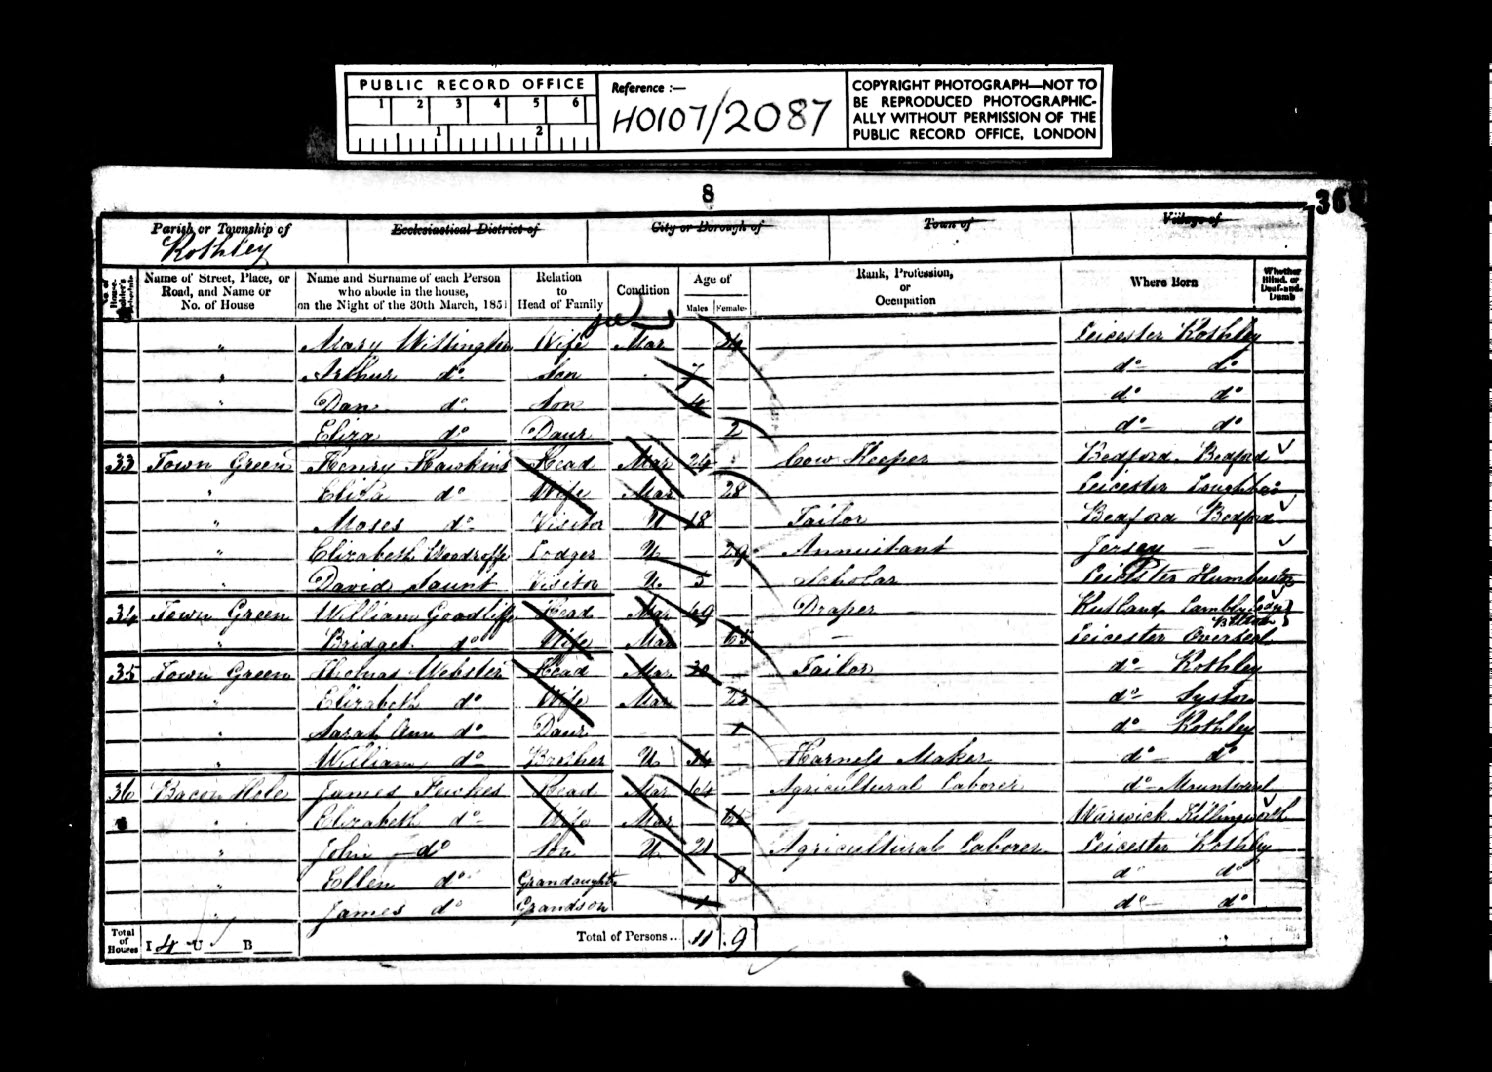 PUBLIC RECORD OFFICE
1 2 3 4 5 6
1 2
Reference :—
HO107/2087
COPYRIGHT PHOTOGRAPH—NOT TO
BE REPRODUCED PHOTOGRAPHIC-
ALLY WITHOUT PERMISSION OF THE
PUBLIC RECORD OFFICE, LONDON
8
Parish or Township of Ecclesiastical District of City or Borough of Town of Village of
Rothley
Name of Street, Place, or Road, and Name or No. of House
Name and Surname of each Person who abode in the house, on the Night of the 30th March, 1851
Relation to Head of Family
Condition
Age of
Males Females
Rank, Profession, or Occupation
Where Born
Whether Blind, or Deaf-and-Dumb
" Mary Wife Mar Leicester Rothley
" Arthur do. Son 7 do- do
" Dan do. Son 4 do do
Eliza do Daur 2 do- do
33 Town Green Henry Hawkins Head Mar 24 Cow Keeper Bedford Bedford
" Eliza do Wife Mar 28 Leicester
" Moses do- Visitor U 18 Tailor Bedford Bedford
" Elizabeth Lodger U 29 Annuitant Jersey —
" David Visitor U. 5 Scholar Leicester
34 Town Green William Head Mar 49 Draper Rutland
" Bridget do Wife Mar Leicester
35 Town Green Thomas Webster Head Mar 30 Tailor do- Rothley
" Elizabeth do Wife Mar do- Syston
" Sarah Ann do Daur 1 do- Rothley
" William do- Brother U Harness Maker do- do
36 Bacon Hole James Head Mar 64 Agricultural Laborer do- Mountsorrel
" Elizabeth do- Wife Mar Warwick
" John do Son U 21 Agricultural Laborer Leicester Rothley
" Ellen do Grandaughter 8 do do
" James do Grandson 1 do- do
Total of Houses I 4 U B Total of Persons.. 11 9